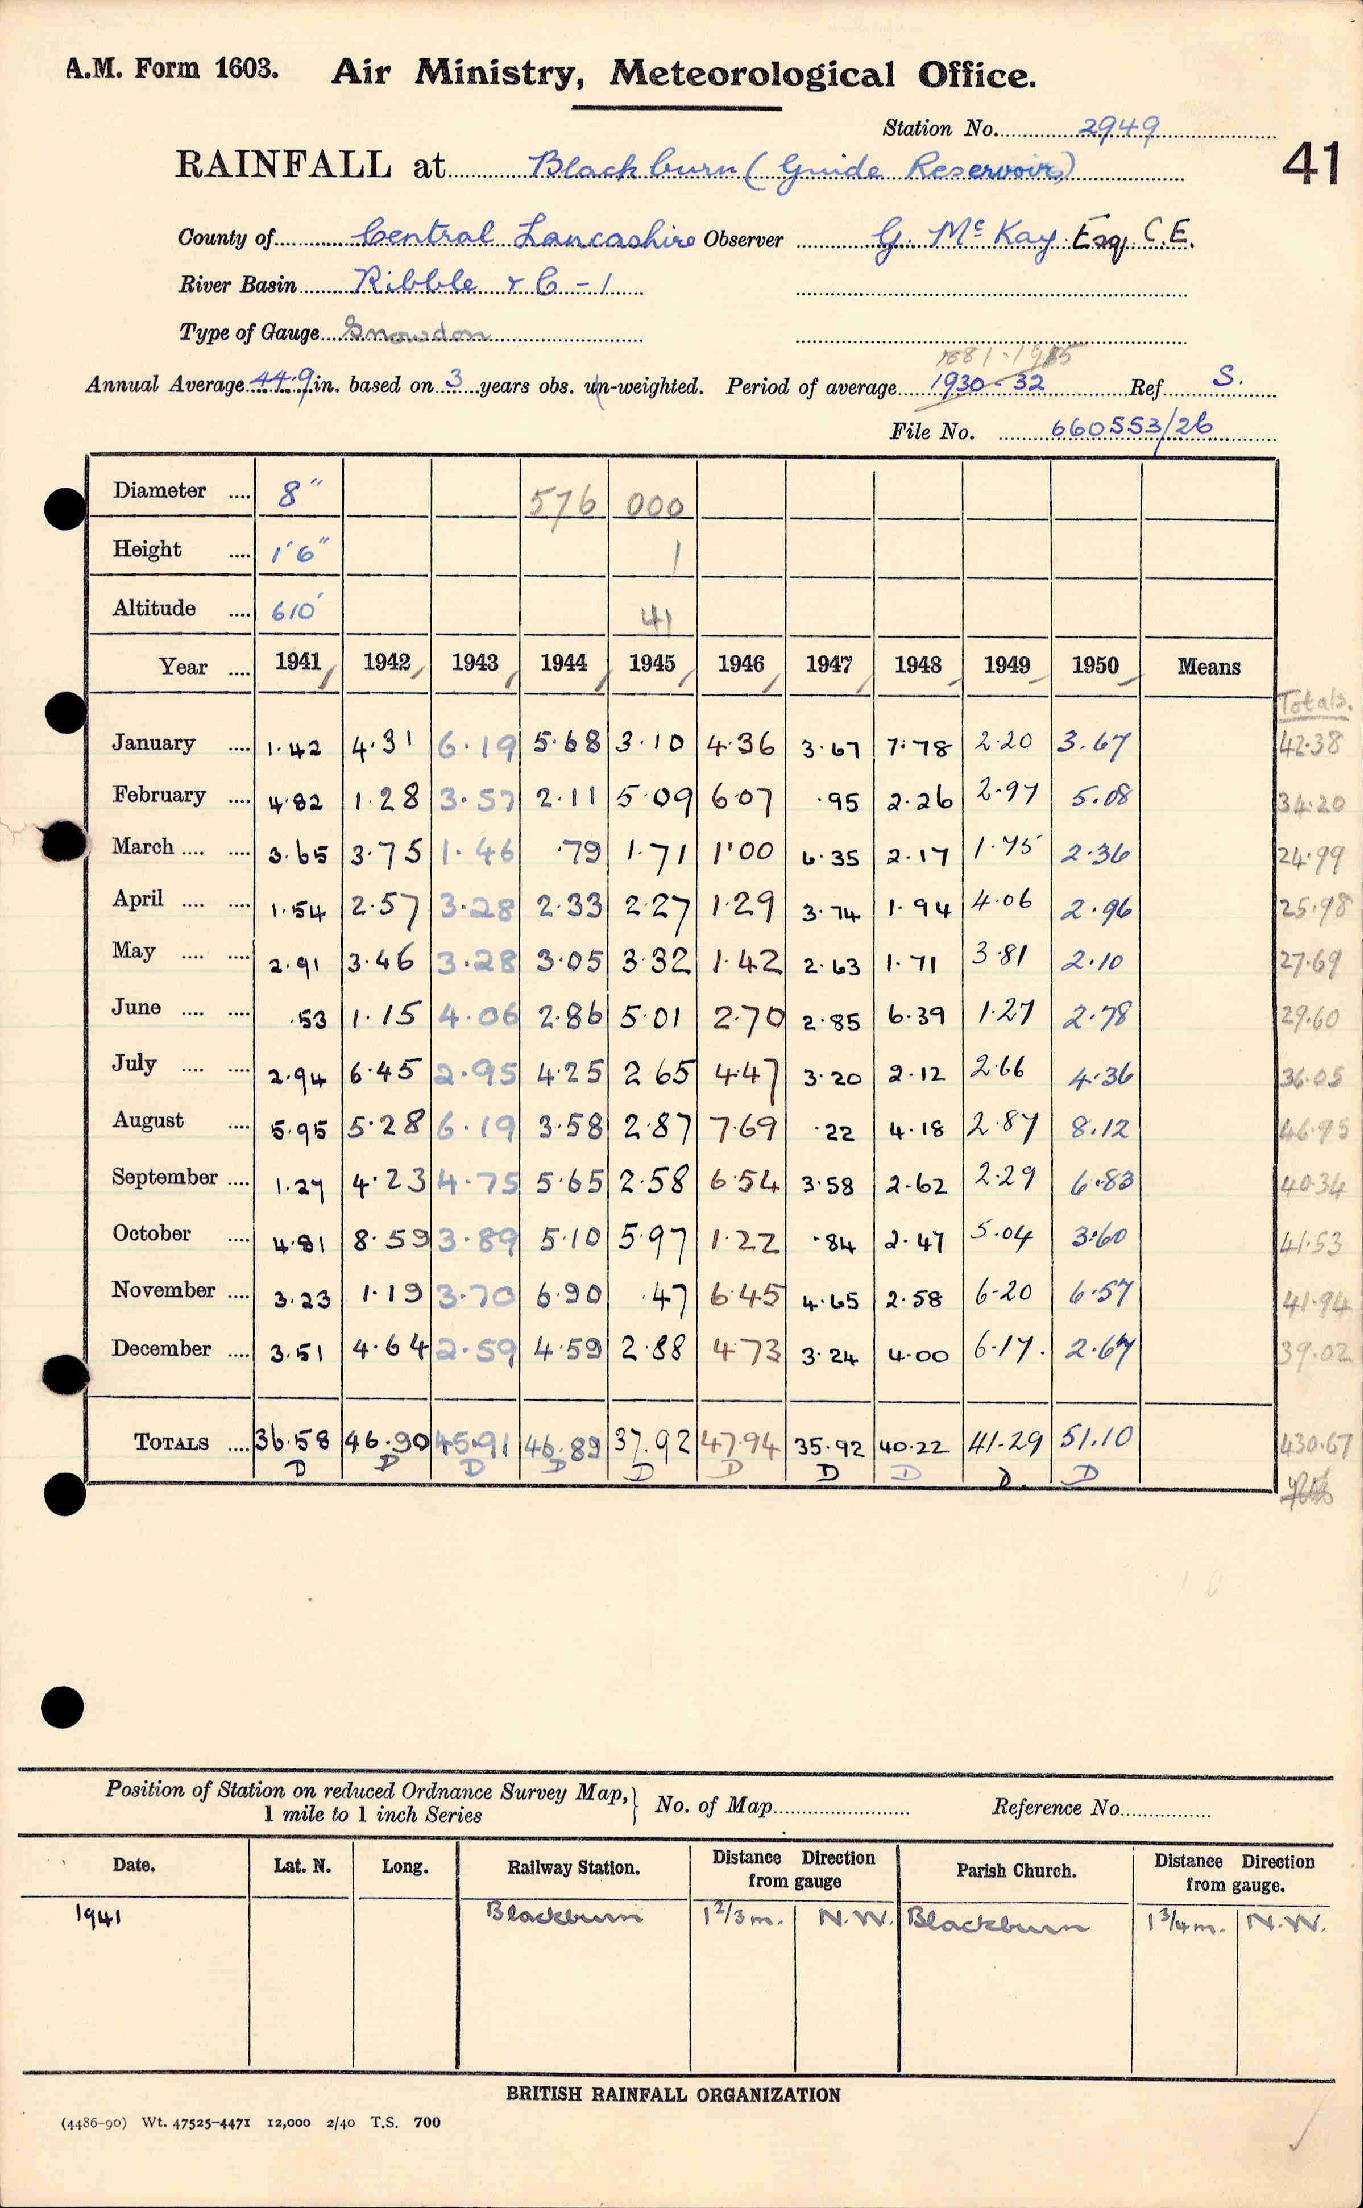 A.M. Form 1603. Air Ministry, Meteorological Office.
Station No. 2949
41
RAINFALL at Blackburn (Guide Reservoir)
County of Central Lancashire Observer G. McKay Esq. C.E.
River Basin Ribble & C - 1
Type of Gauge Snowdon
1881-1915
Annual Average 44.9 in. based on 3 years obs. un-weighted. Period of average 1930-32 Ref S.
File No. 660553/26
Diameter .... 8" 576 000
Height .... 1'6" 1
Altitude .... 610' 41
Year .... 1941 1942 1943 1944 1945 1946 1947 1948 1949 1950 Means
Totals.
January .... 1.42 4.31 6.19 5.68 3.10 4.36 3.67 7.78 2.20 3.67 42.38
February .... 4.82 1.28 3.57 2.11 5.09 6.07 .95 2.26 2.97 5.08 34.20
March .... .... 3.65 3.75 1.46 .79 1.71 1.00 6.35 2.17 1.75 2.36 24.99
April .... .... 1.54 2.57 3.28 2.33 2.27 1.29 3.74 1.94 4.06 2.96 25.98
May .... .... 2.91 3.46 3.28 3.05 3.32 1.42 2.63 1.71 3.81 2.10 27.69
June .... .... .53 1.15 4.06 2.86 5.01 2.70 2.85 6.39 1.27 2.78 29.60
July .... .... 2.94 6.45 2.95 4.25 2.65 4.47 3.20 2.12 2.66 4.36 36.05
August .... 5.95 5.28 6.19 3.58 2.87 7.69 .22 4.18 2.87 8.12 46.95
September .... 1.27 4.23 4.75 5.65 2.58 6.54 3.58 2.62 2.29 6.83 40.34
October .... 4.81 8.59 3.89 5.10 5.97 1.22 .84 2.47 5.04 3.60 41.53
November .... 3.23 1.19 3.70 6.90 .47 6.45 4.65 2.58 6.20 6.57 41.94
December .... 3.51 4.64 2.59 4.59 2.88 4.73 3.24 4.00 6.17. 2.67 39.02
TOTALS .... 36.58 46.90 45.91 46.89 37.92 47.94 35.92 40.22 41.29 51.10 430.67
D D D D D D D D D. D
Position of Station on reduced Ordnance Survey Map,} No. of Map Reference No.
1 mile to 1 inch Series
Date. Lat. N. Long. Railway Station. Distance Direction from gauge Parish Church. Distance Direction from gauge.
1941 Blackburn 1 2/3 m. N.W. Blackburn 1 3/4 m. N.W.
BRITISH RAINFALL ORGANIZATION
(4486-90) Wt. 47525-4471 12,000 2/40 T.S. 700